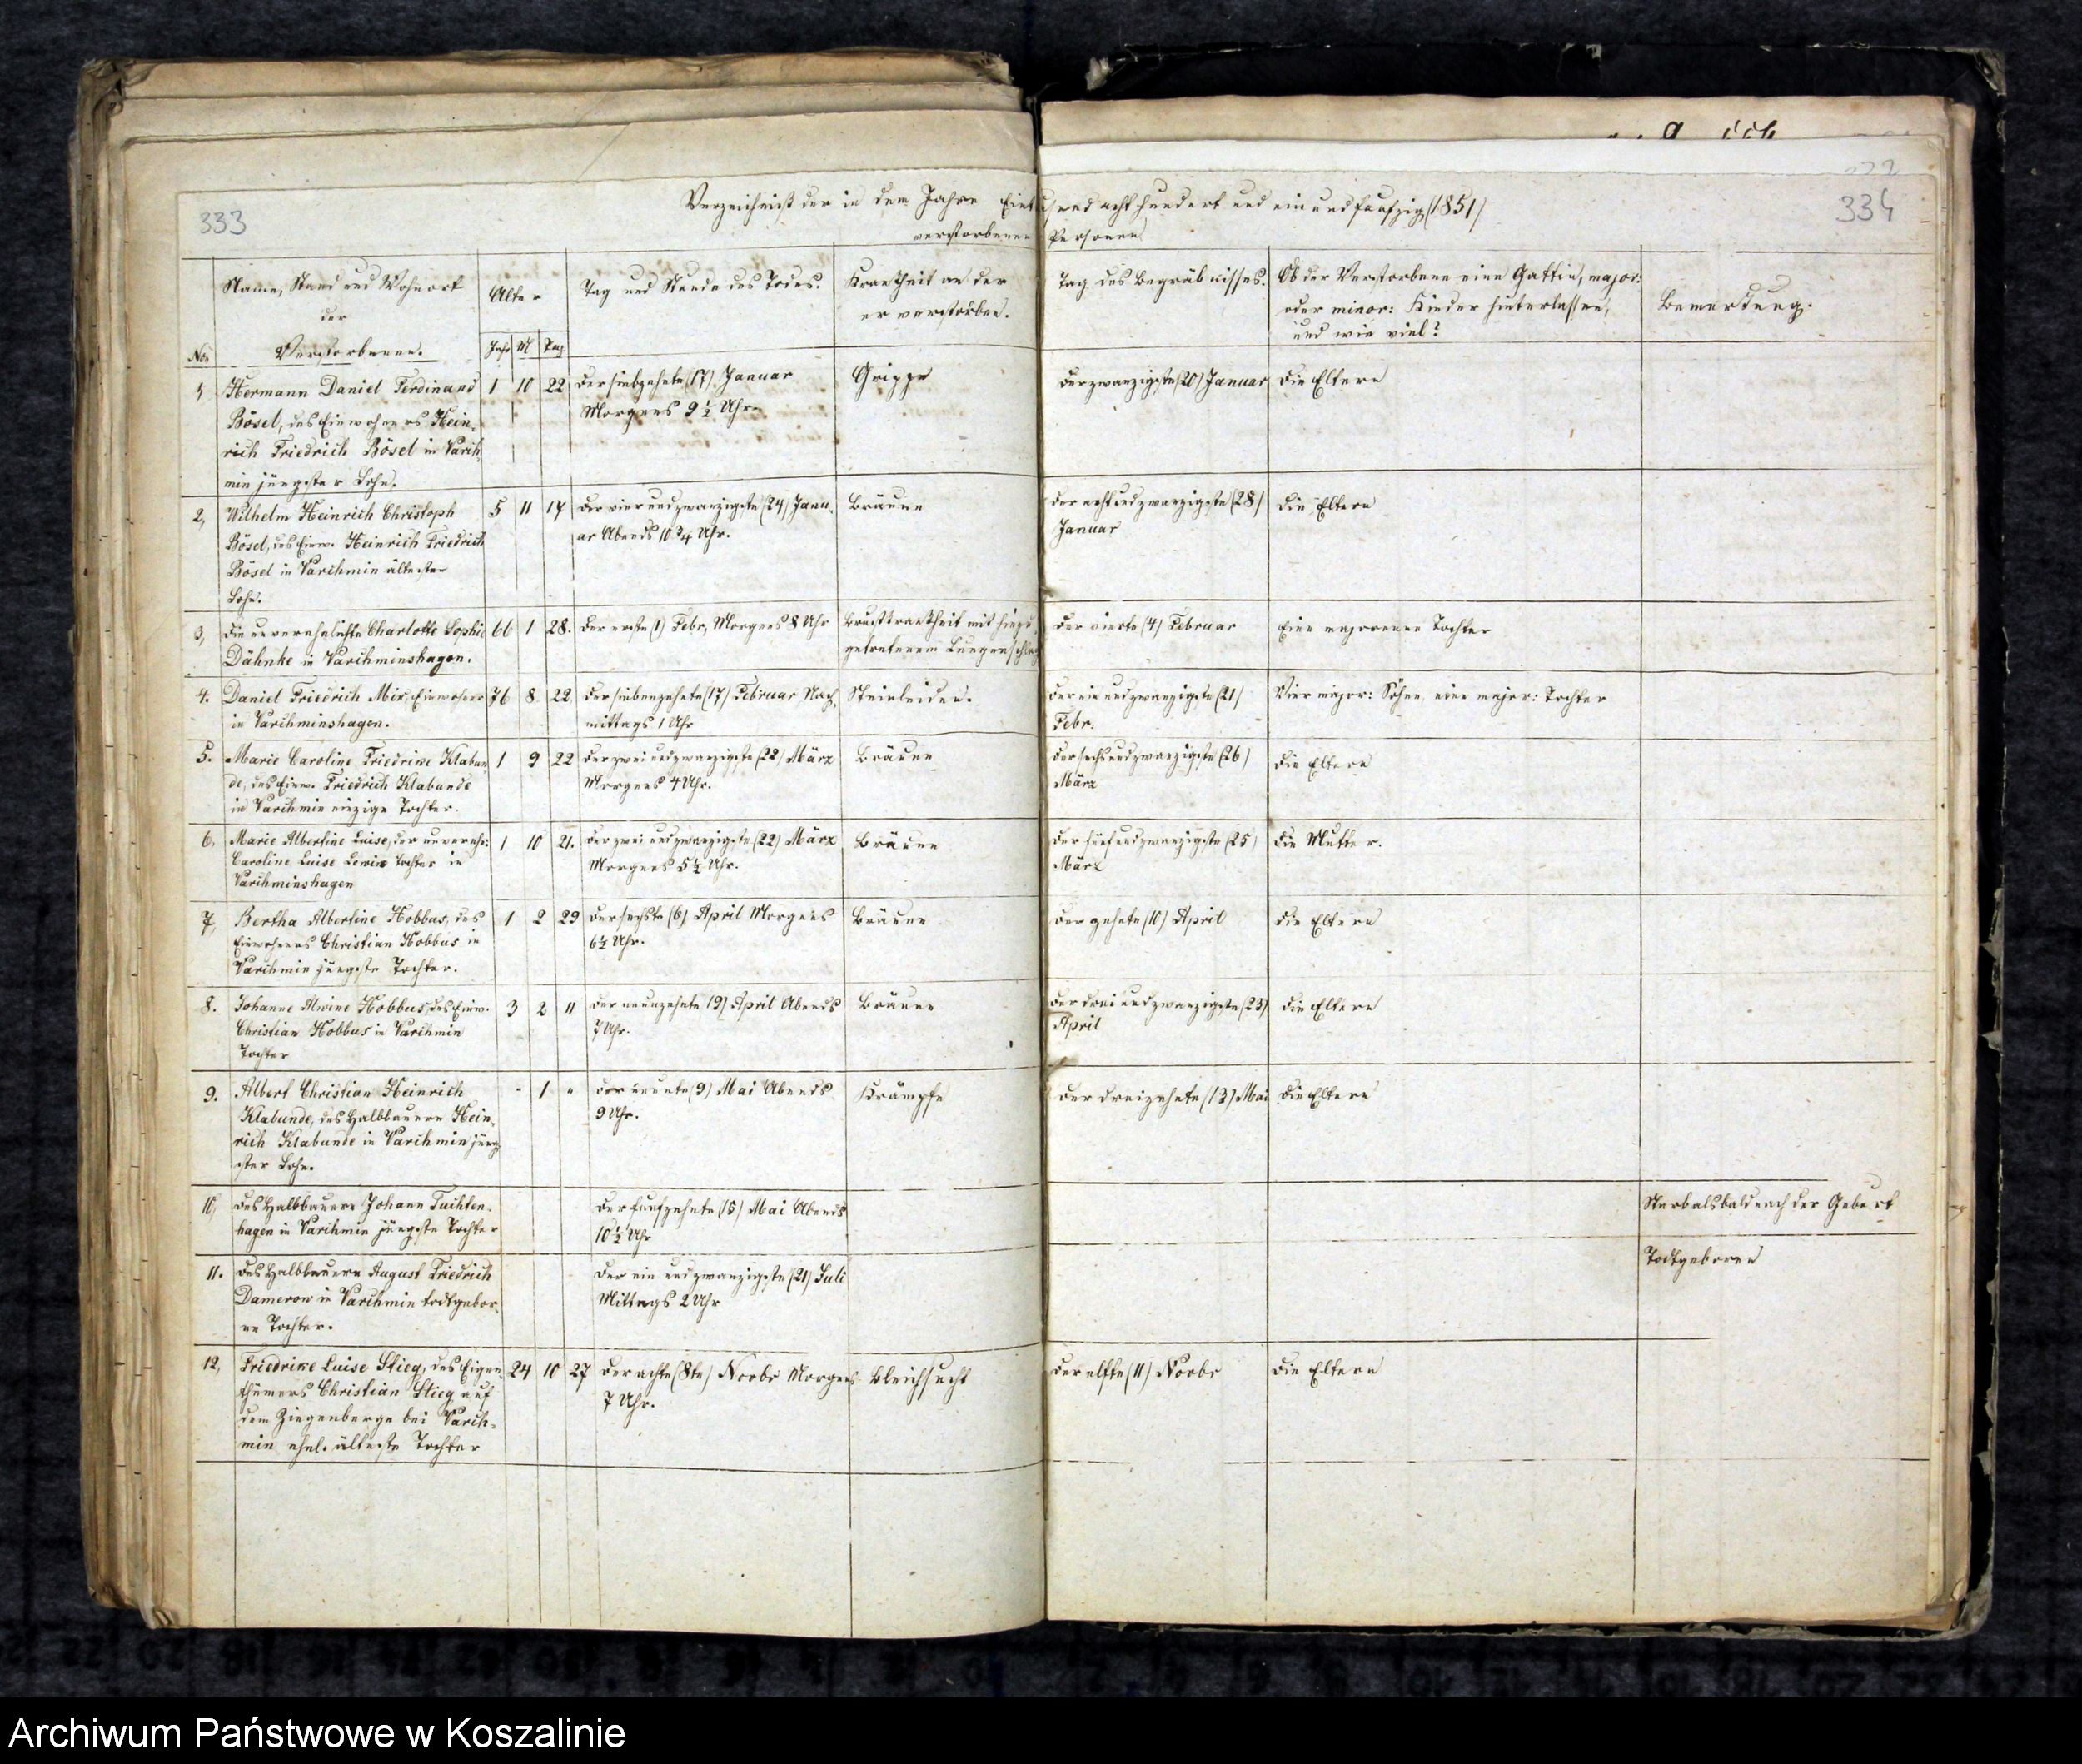 333
334
Verzeichniß der in dem Jahre Eintausend acht hundert und ein und funfzig (1851)
verstorbenen Personen
No
Name, Stand und Wohnort
der
Verstorbenen.
Alter
Jahr M Tag
Tag und Stunde des Todes.
Krankheit an der
er verstorben.
Tag des Begräbnisses.
Ob der Verstorbene eine Gattin, major:
oder minor: Kinder hinterlassen,
und wie viel?
Bemerkung.
1, Hermann Daniel Ferdinand
Bösel, des Einwohners Hein-
rich Friedrich Bösel in Varch-
min jüngster Sohn.
1 10 22
Der siebzehnte (17) Januar
Morgens 9 ½ Uhr.
Grippe
Der zwanzigste (20) Januar
Die Eltern
2, Wilhelm Heinrich Christoph
Bösel, des Einw. Heinrich Friedrich
Bösel in Varchmin ältester
Sohn.
5 11 17
Der vier und zwanzigste (24) Janu-
ar Abends 10 ¾ Uhr.
Bräune
Der acht und zwanzigste (28)
Januar
Die Eltern
3, Die unverehelichte Charlotte Sophie
Dähnke in Varchminshagen.
66 1 28.
Der erste (1) Febr, Morgens 8 Uhr
Brustkrankheit mit hinzu
getretenem Lungenschlag
Der vierte (4) Februar
Eine majorenne Tochter
4. Daniel Friedrich Mix, Einwohner
in Varchminshagen.
76 8 22
Der siebenzehnte (17) Februar Nach-
mittags 1 Uhr
Steinleiden.
Der ein und zwanzigste (21)
Febr.
Vier major: Söhne, eine major: Tochter
5. Marie Caroline Friedrike Klabun
de, des Einw. Friedrich Klabunde
in Varchmin einzige Tochter.
1 9 22
Der zwei und zwanzigste (22) März
Morgens 4 Uhr.
Bräune
Der sechs und zwanzigste (26)
März
Die Eltern
6, Marie Albertine Luise, der unvereh:
Caroline Luise Lewin Tochter in
Varchminshagen
1 10 21.
Der zwei und zwanzigste (22) März
Morgens 5 ½ Uhr.
Bräune
Der fünf und zwanzigste (25)
März
Die Mutter.
7, Bertha Albertine Kobbus, des
Einwohners Christian Kobbus in
Varchmin jüngste Tochter.
1 2 29
Der sechste (6) April Morgens
6 ½ Uhr.
Bräune
Der zehnte (10) April
Die Eltern
8. Johanne Alwine Kobbus, des Einw.
Christian Kobbus in Varchmin
Tochter
3 2 11
Der neunzehnte 19) April Abends
7 Uhr.
Bräune
Der drei und zwanzigste (23)
April
Die Eltern
9. Albert Christian Heinrich
Klabunde, des Halbbauern Hein-
rich Klabunde in Varchmin jüng-
ster Sohn.
- 1 "
Der neunte (9) Mai Abends
9 Uhr.
Krämpfe
Der dreizehnte (13) Mai
Die Eltern
10, Des Halbbauern Johann Tuchten-
hagen in Varchmin jüngste Tochter
Der funfzehnte (15) Mai Abends
10 ½ Uhr
Starb alsbald nach der Geburt
11. Des Halbbauern August Friedrich
Damerow in Varchmin todtgebor-
ne Tochter.
Der ein und zwanzigste (21) Juli
Mittags 2 Uhr
Todtgeboren
12, Friedrike Luise Stieg, des Eigen-
thümers Christian Stieg auf
dem Ziegenberge bei Varch-
min ehel. älteste Tochter
24 10 27
Der achte (8te) Novbr Morgens
7 Uhr.
Bleichsucht
Der elfte (11) Novbr
Die Eltern
Archiwum Państwowe w Koszalinie